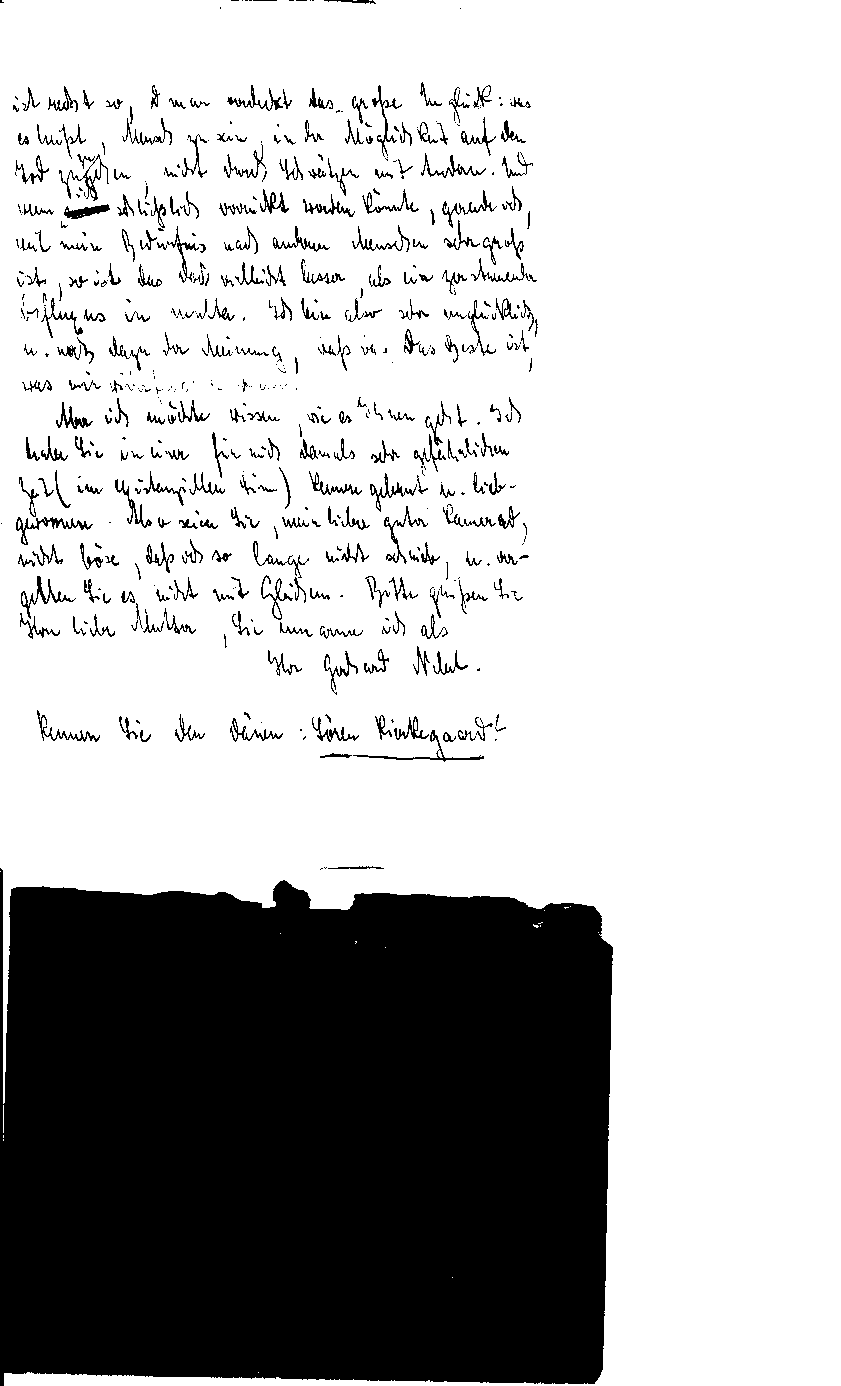 ist recht so, d man verdeckt das große Unglück: was
es heißt, Mensch zu sein, in der Möglichkeit auf den
Tod zu, nicht durch Schwätzen mit Andern. Und
wenn ich schließlich verrückt werden könnte, gerade ich,
weil mein Bedürfnis nach anderen Menschen sehr groß
ist, so ist das doch vielleicht besser, als ein
in. Ich bin also sehr unglücklich,
u. noch dazu der Meinung, daß es das Beste ist,
was mir
Aber ich möchte wissen, wie es Ihnen geht. Ich
habe Sie in einer für mich damals sehr gefährlichen
Zeit (im existenziellen Sinn) kennen gelernt u. lieb-
gewonnen. Also seien Sie, mein lieber guter Kamerad,
nicht böse, daß ich so lange nicht schrieb, u. ver-
gelten Sie es nicht mit Gleichem. Bitte grüßen Sie
Ihre liebe Mutter, Sie umarme ich als
Ihr
Kennen Sie den Dänen: Sören Kierkegaard?